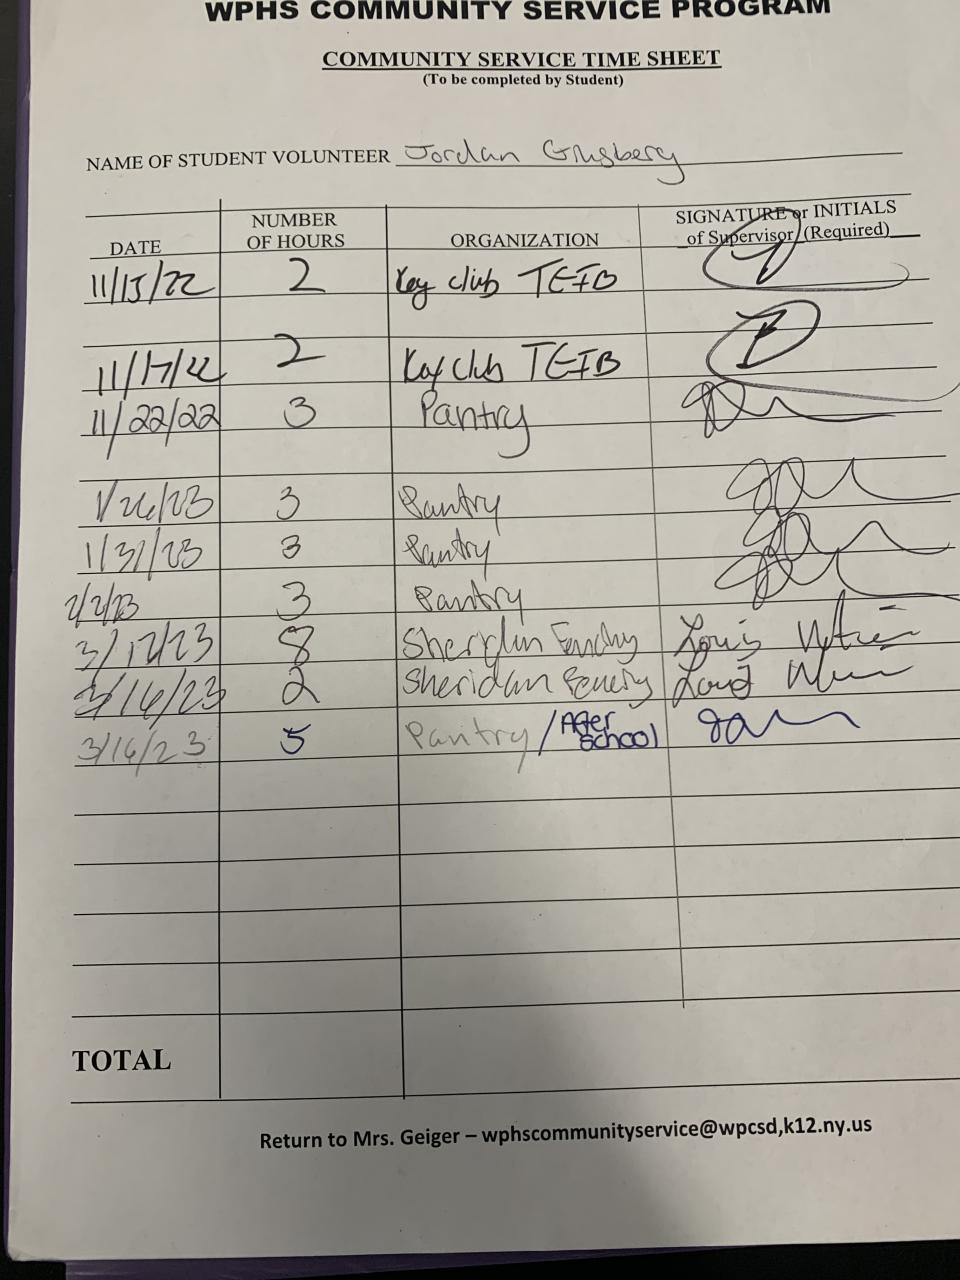 WPHS COMMUNITY SERVICE PROGRAM
COMMUNITY SERVICE TIME SHEET
(To be completed by Student)
NAME OF STUDENT VOLUNTEER Jordan Ginsberg
DATE NUMBER OF HOURS ORGANIZATION SIGNATURE or INITIALS of Supervisor (Required)
11/15/22 2 Key club TEIB
11/17/22 2 Key club TEIB
11/22/22 3 Pantry
1/26/23 3 Pantry
1/31/23 3 Pantry
2/2/23 3 Pantry
3/12/23 8 Sheridan Louis
3/16/23 2 Sheridan
3/16/23 5 Pantry / After School
TOTAL
Return to Mrs. Geiger – wphscommunityservice@wpcsd,k12.ny.us